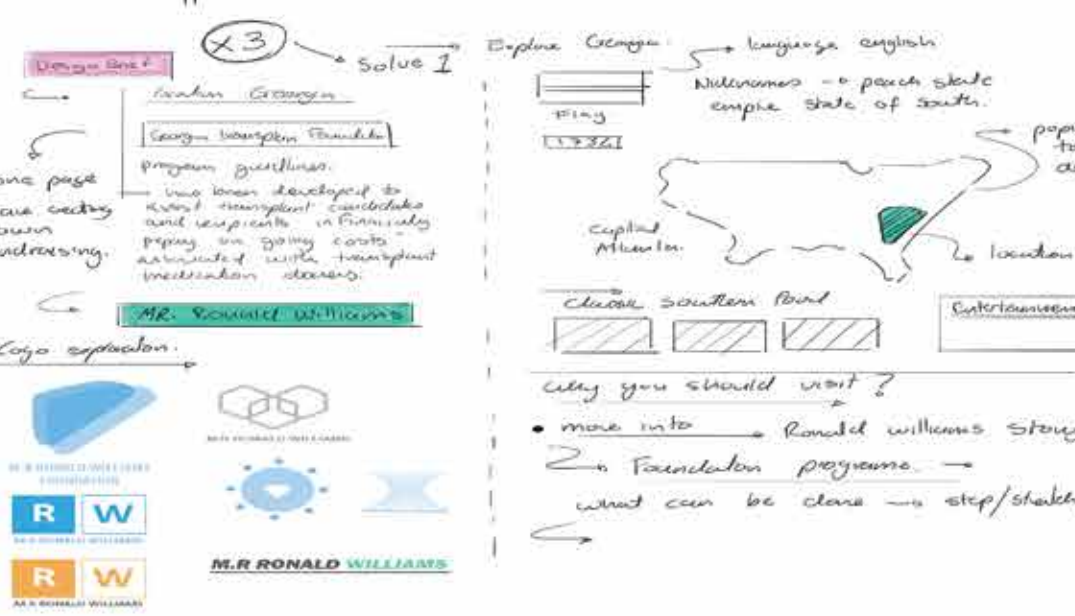 x3
Solve 1
Design Brief
Georgia
Georgia transplant Foundation
program guidlines.
one page
has been developed to
transplant candidates
and recipients in Financialy
on going costs
associated with transplant
medication
MR. Ronald Williams
Logo
M.R RONALD WILLIAMS
FOUNDATION
R W
M.R RONALD WILLIAMS
R W
M.R RONALD WILLIAMS
M.R RONALD WILLIAMS
M.R RONALD WILLIAMS
Explore Georgia.
language english
Nicknames peach state
empire state of south.
Flag
Capital
Atlanta.
location
Classic Southern Food
Entertainmen
Why you should visit?
more into Ronald williams story
Foundation programe
what can be done step/sketch